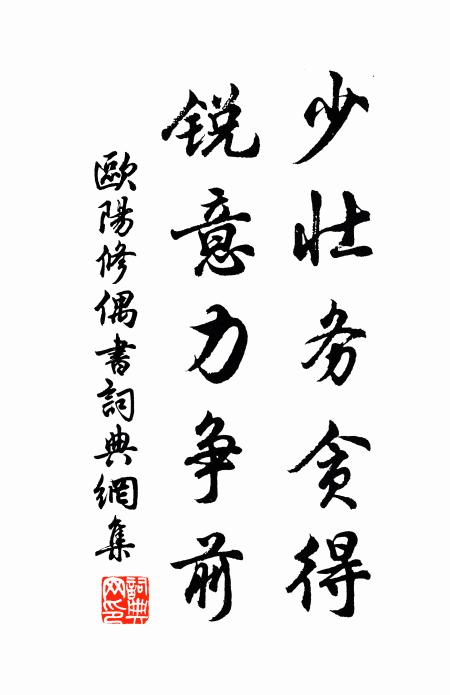 少壮务貪得
锐意力争前
歐陽修偶書詞典網集
詞典網印